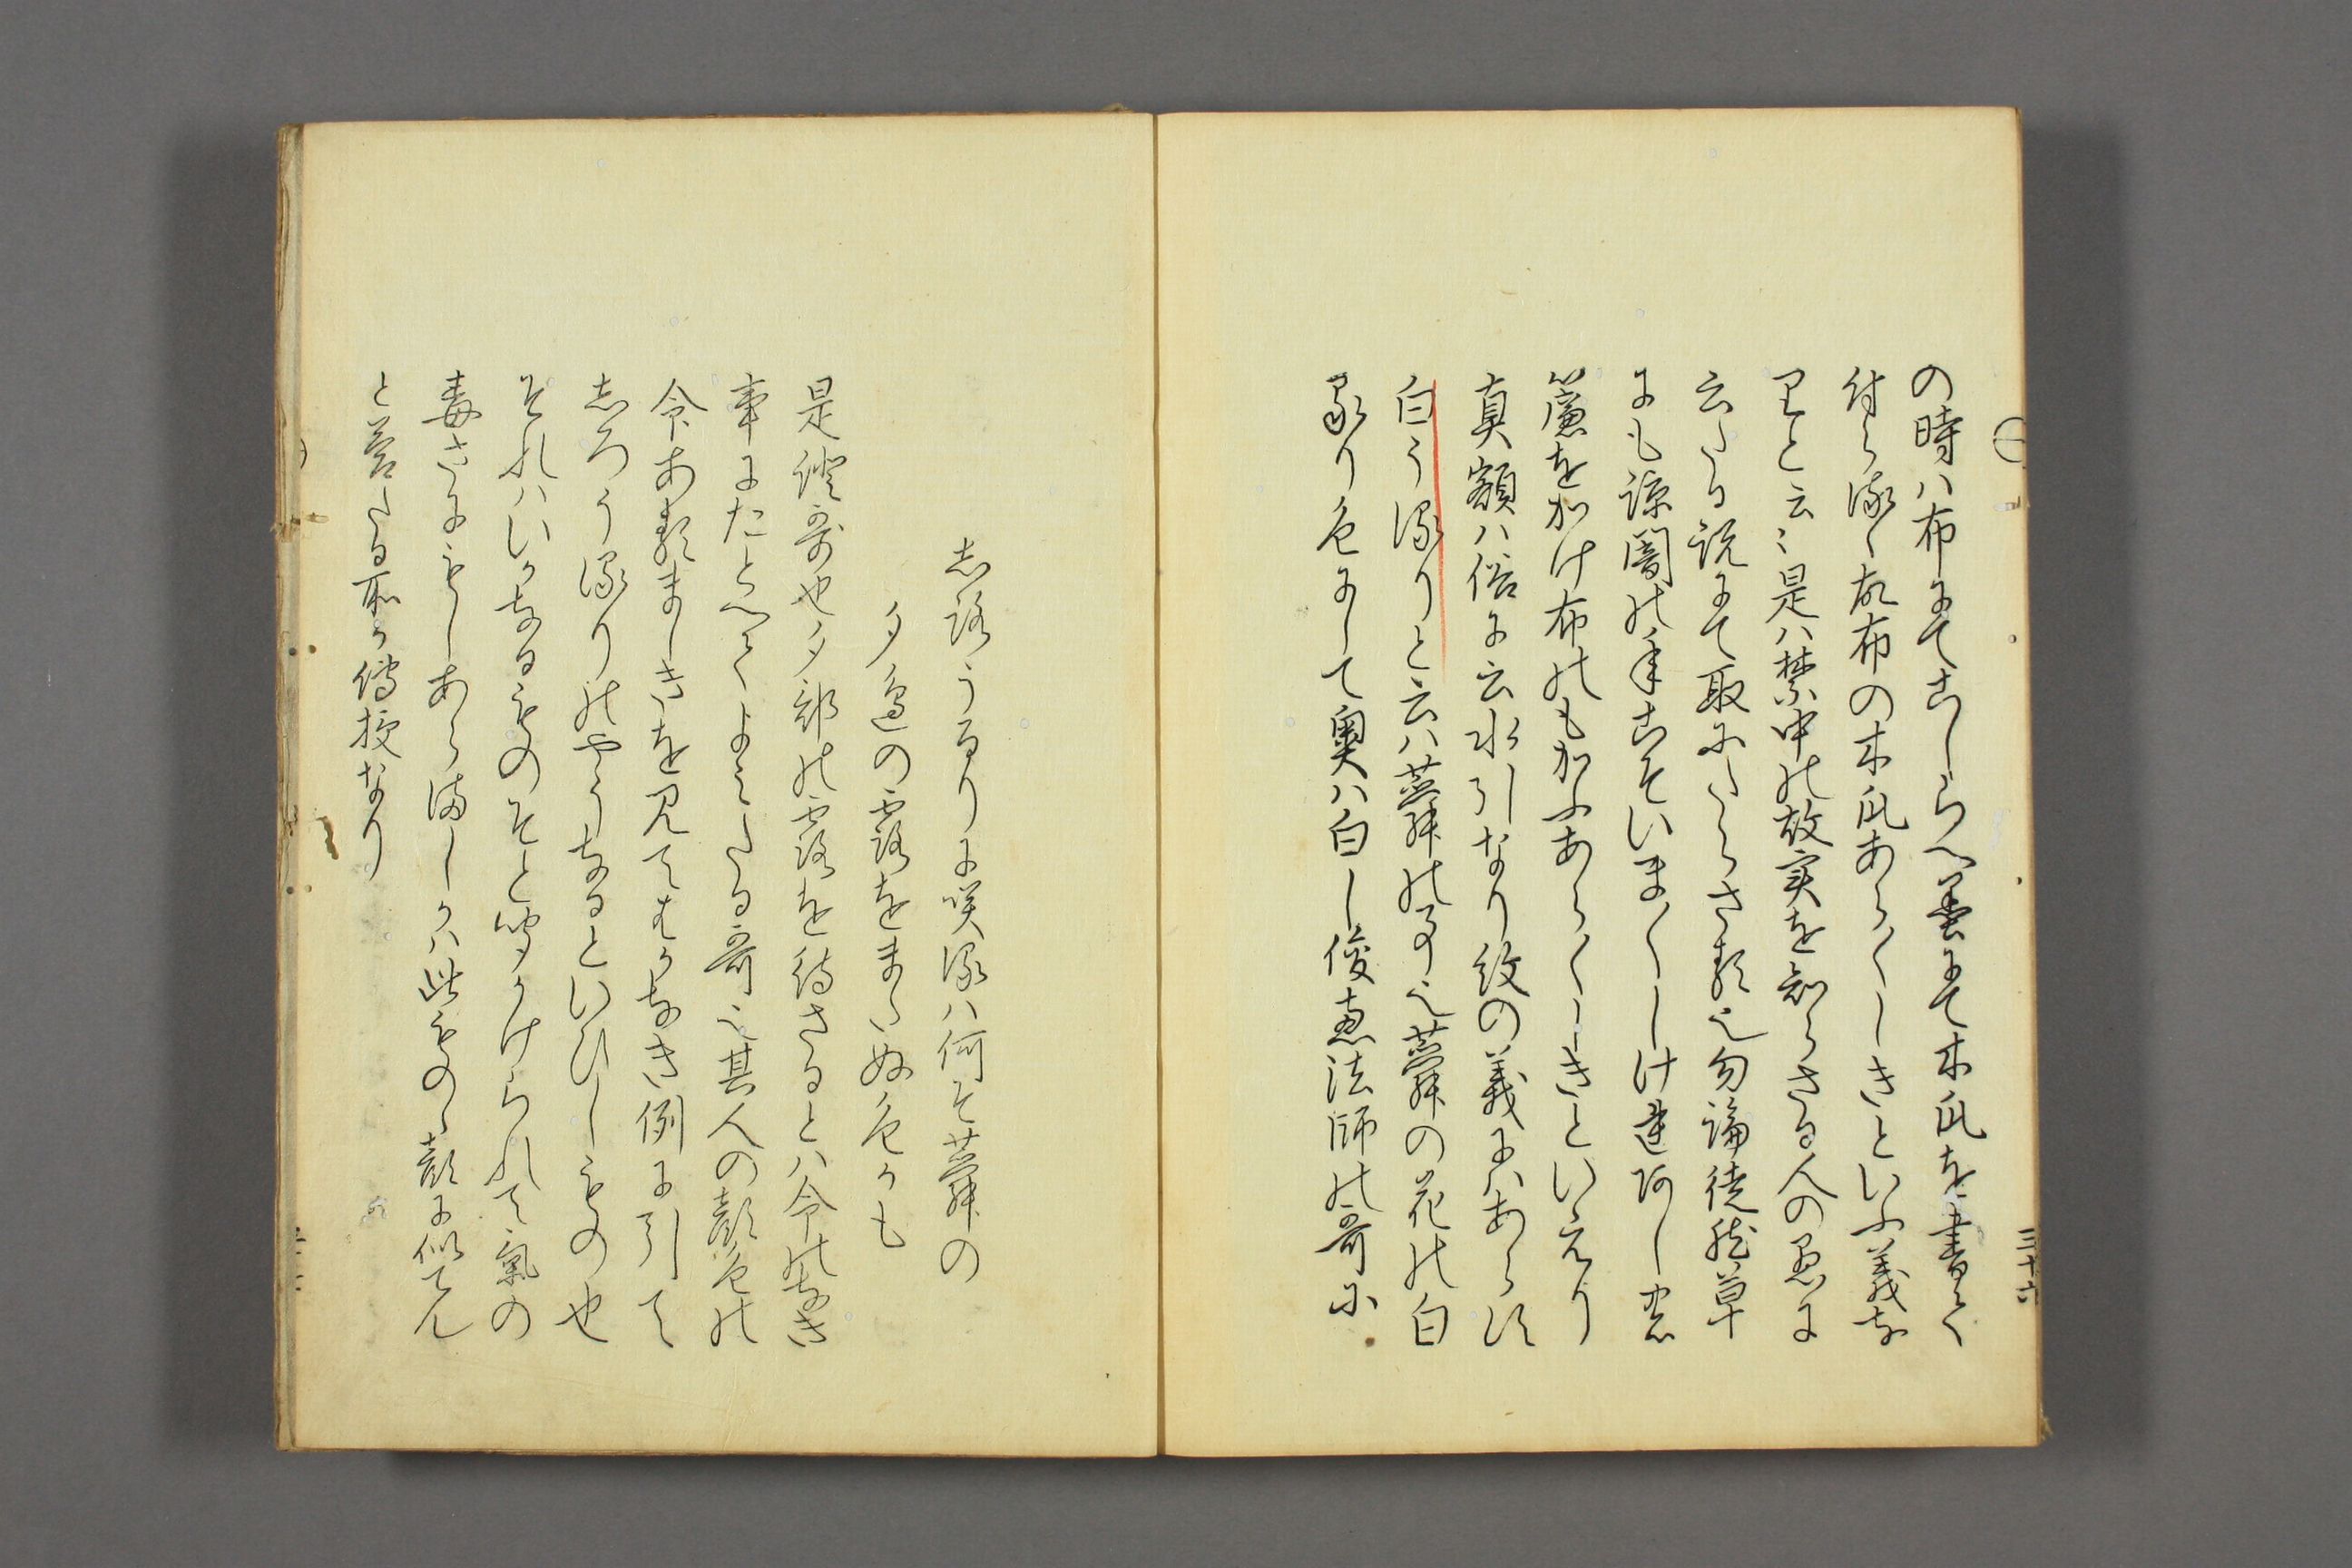 の時ハ布にてこしらへ墨にて木瓜を書て
付らるゝ故布の木瓜あら〳〵しきといふ義な
りと云々是ハ禁中の故実を知らさる人の愚に
云たる説にて取にたらさる也勿論徒然草
にも諒闇の年こそいま〳〵しけ
簾をかけ布のもかふあら〳〵しきといえり
真額ハ俗に云水引なり紋の義にハあらす
白うるりと云ハ蕣の事也蕣の花の白
るり色にして奥ハ白し俊恵法師の哥に
志路うるりに咲るハ何そ蕣の
夕邊の露をまたぬ色かも
是證哥也夕部の露を待さるとハ命のなき
事にたとへてよみたる哥也其人の顔色の
命あるましきを見てはかなき例に引て
志ろうるりのやうなるといひしもの也
それハいかなるものそと問かけられて氣の
毒さにもしあらましかハ此ものゝ顔に似てん
と答たる所か傳授なり
三十六